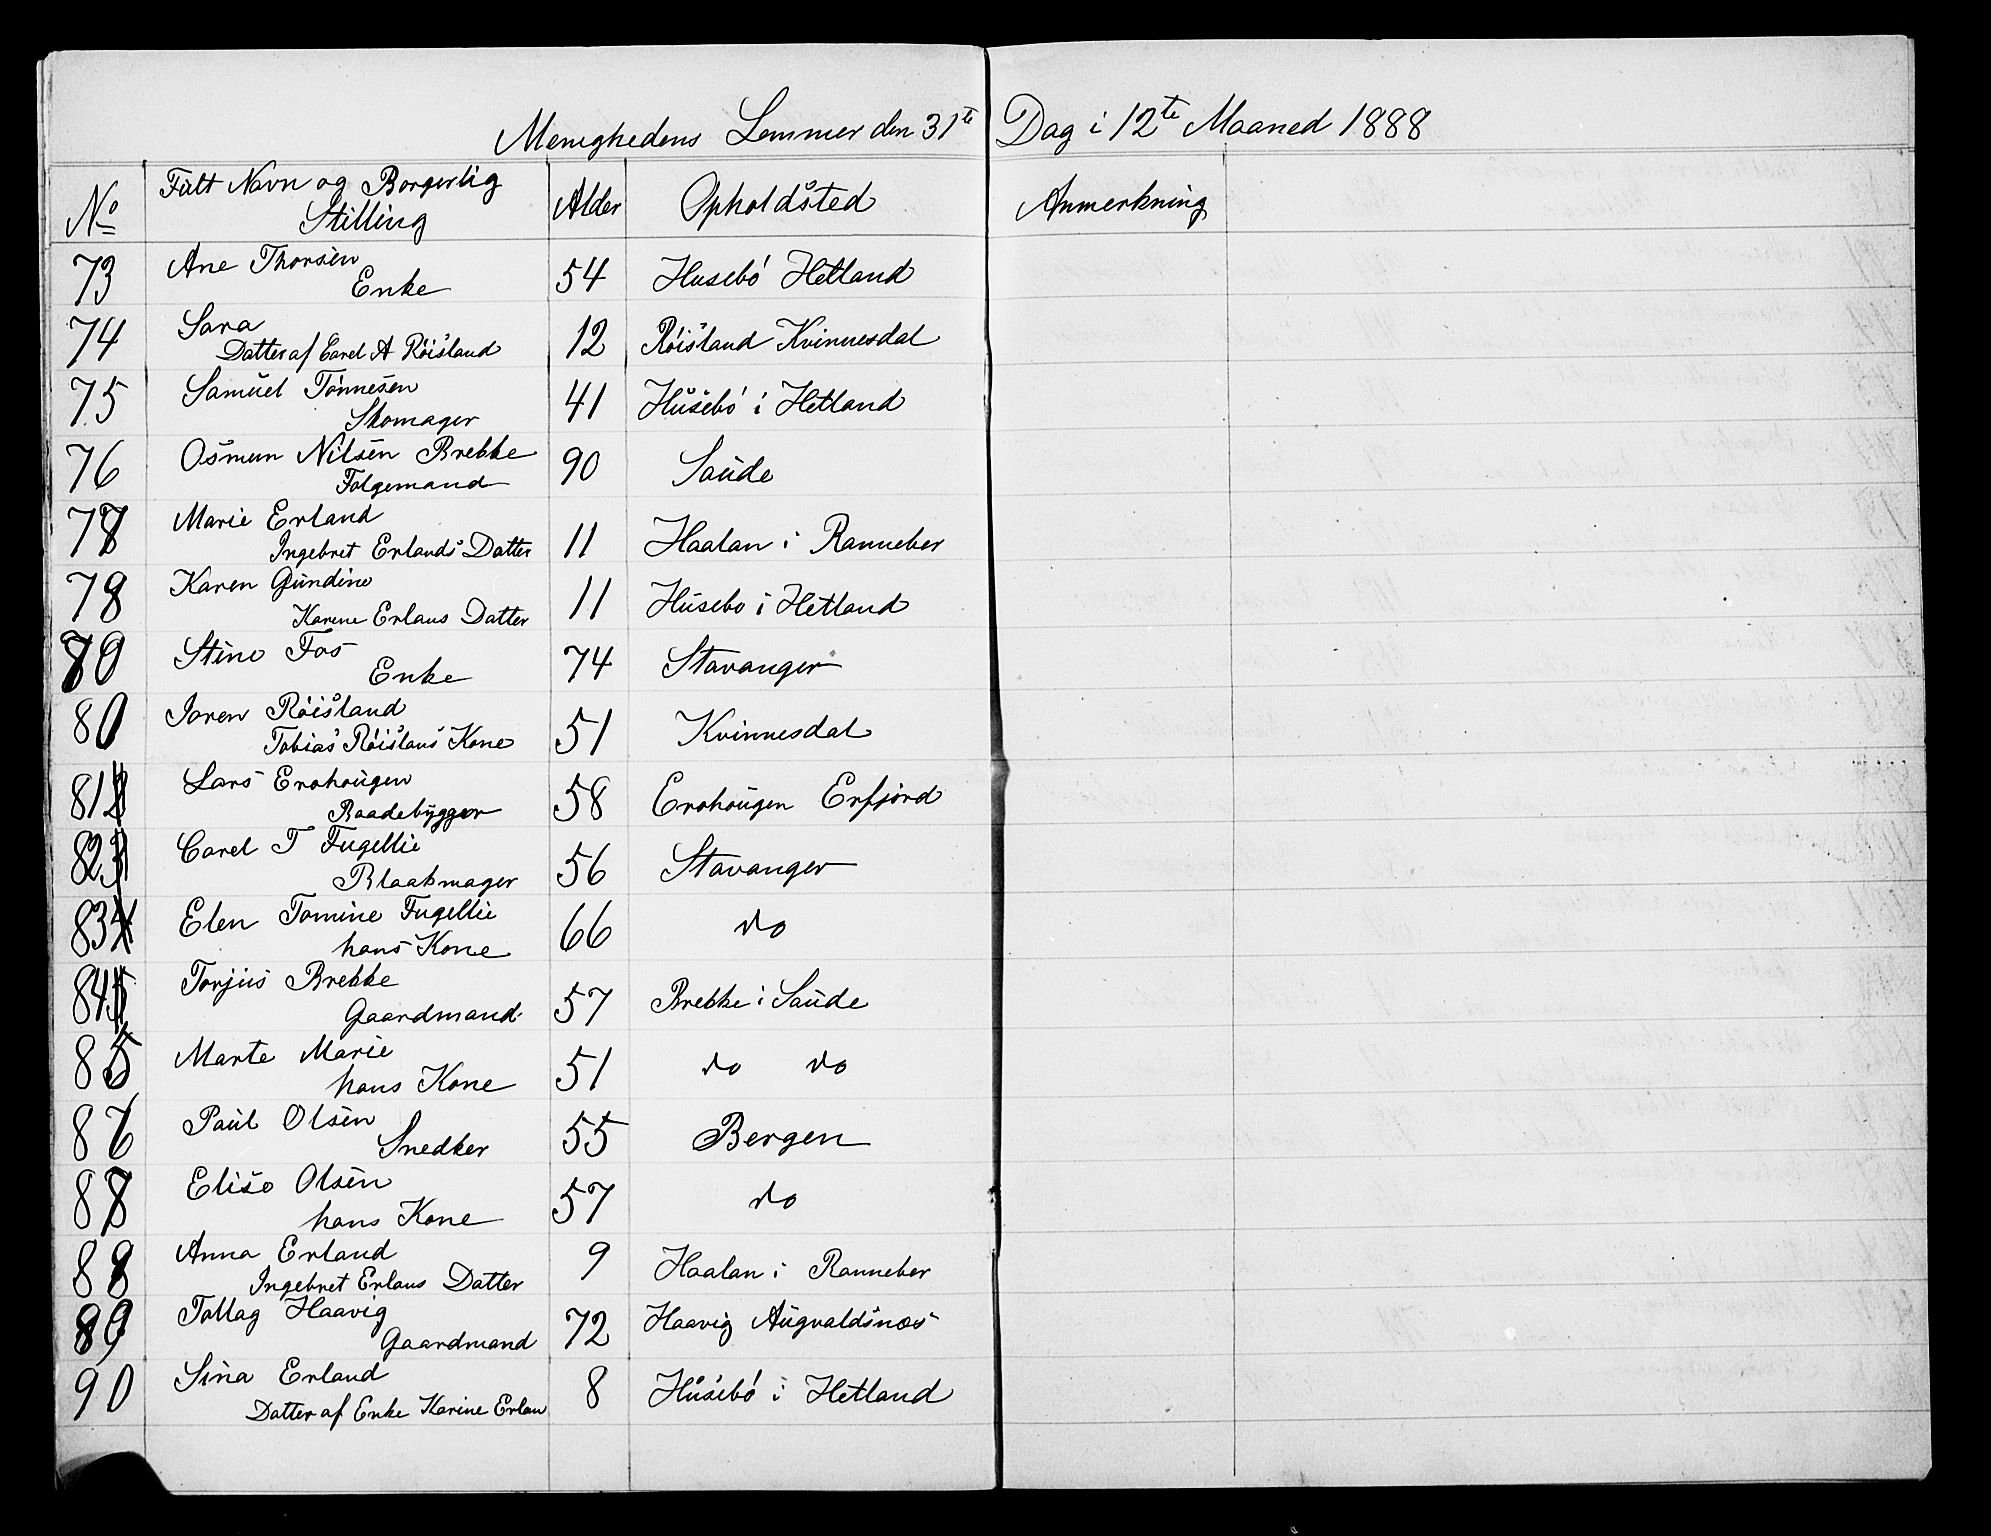 Menighedens Lemmer den 31te Dag i 12te Maaned 1888
No Fult Navn og Borgerlig Stilling Alder Opholdsted Anmerkning
73 Ane Thorsen
Enke 54 Husebó Hetland
74 Sara
Datter af Carel A Róisland 12 Róisland Kvinnesdal
75 Samuel Tónnesen
Skomager 41 Husebó i Hetland
76 Osmun Nilsen Brekke
Folgemand 90 Saude
Marie Erland
Ingebret Erlands Datter 11 Haalan i Ranneber
78 Karen Gundine
Karine Erlans Datter 11 Husebo i Hetland
Stine Fos
Enke 74 Stavanger
80 Joren Róisland
Tobias Róislans Kone 51 Kvinnesdal
81 Lars Erohougen
Baadebygger 58 Erohougen Erfjord
82 Carel T Fugellie
Blaakmager 56 Stavanger
83 Elen Tomine Fugellie
hans Kone 66 do
84 Torjus Brekke
Gaardmand 57 Brekke i Saude
85 Marte Marie
hans Kone 51 do do
86 Paul Olsen
Snedker 55 Bergen
87 Elise Olsen
hans Kone 57 do
88 Anna Erland
Ingebret Erlans Datter 9 Haalan i Ranneber
89 Tollag Haavig
Gaardmand 72 Haavig Augvaldsnæs
90 Sina Erland
Datter af Enke Karine Erlan 8 Husebó i Hetland